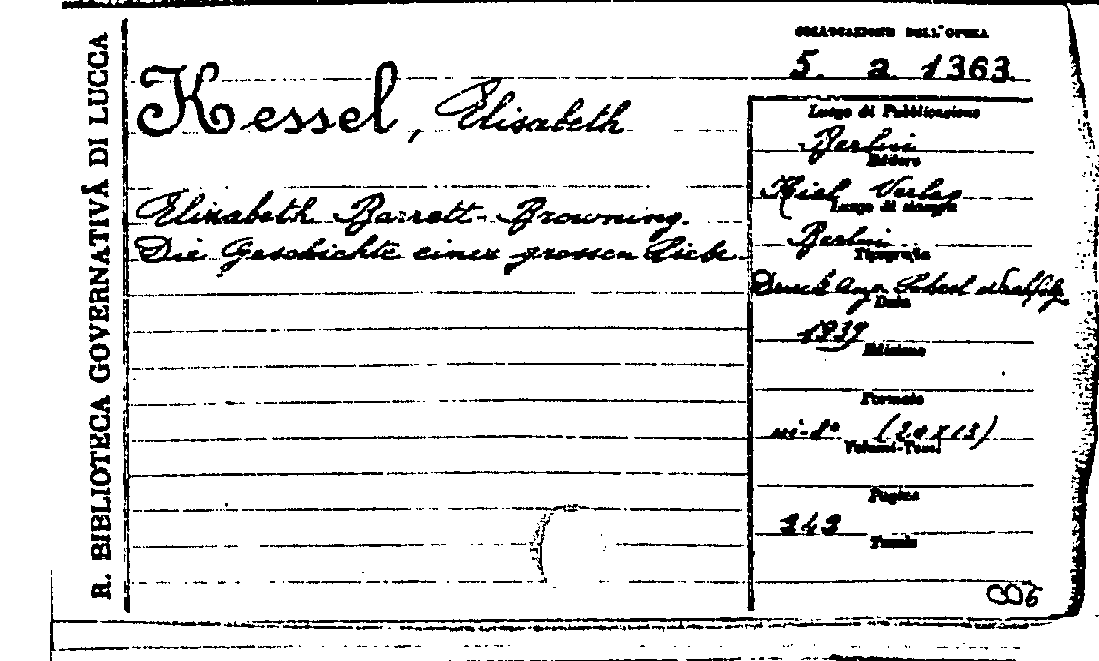 R. BIBLIOTECA GOVERNATIVA DI LUCCA
COLLOCAZIONE DELL'OPERA
5. a 1363
Kessel, Elisabeth
Elisabeth Barrett-Browning.
Die Geschichte einer grossen Liebe.
Luogo di Pubblicazione
Berlin
Editore
Kiel Verlag
Luogo di stampa
Berlin
Tipografia
Druck Aug.
Data
1937
Edizione
Formato
in-8° (20x13)
Volumi-Tomi
Pagine
242
Tavole